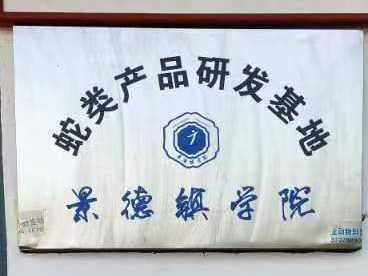 蛇类产品研发基地
景德镇学院